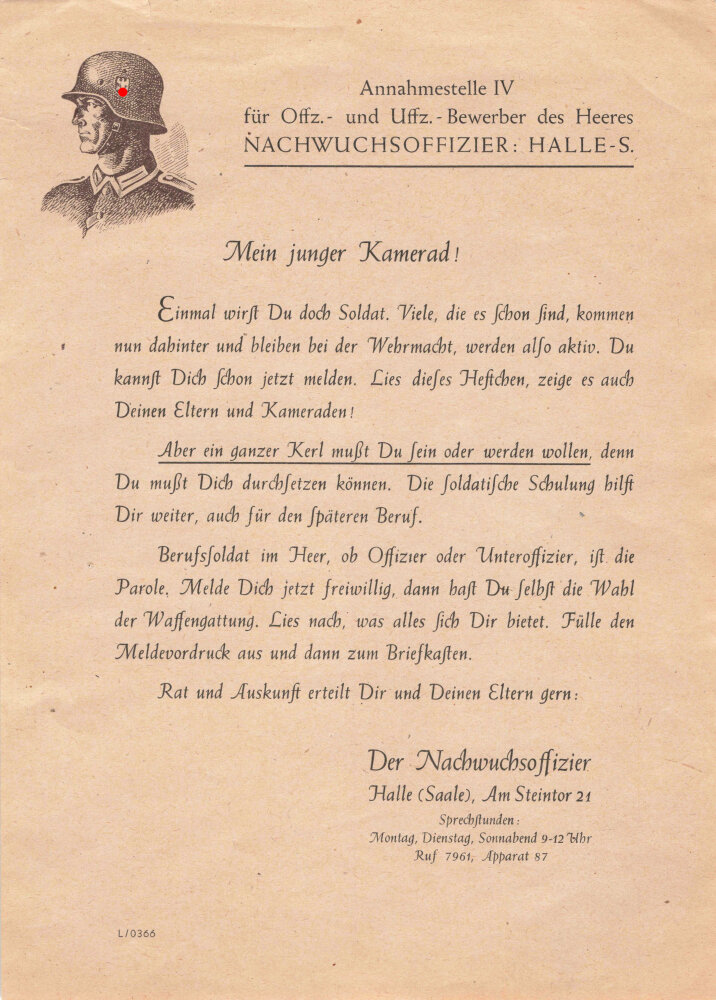 Annahmestelle IV
für Offz.- und Uffz.-Bewerber des Heeres
NACHWUCHSOFFIZIER: HALLE-S.
Mein junger Kamerad!
Einmal wirſt Du doch Soldat. Viele, die es ſchon ſind, kommen
nun dahinter und bleiben bei der Wehrmacht, werden alſo aktiv. Du
kannſt Dich ſchon jetzt melden. Lies dieſes Heftchen, zeige es auch
Deinen Eltern und Kameraden!
Aber ein ganzer Kerl mußt Du ſein oder werden wollen, denn
Du mußt Dich durchſetzen können. Die ſoldatiſche Schulung hilft
Dir weiter, auch für den ſpäteren Beruf.
Berufsſoldat im Heer, ob Offizier oder Unteroffizier, iſt die
Parole. Melde Dich jetzt freiwillig, dann haſt Du ſelbſt die Wahl
der Waffengattung. Lies nach, was alles ſich Dir bietet. Fülle den
Meldevordruck aus und dann zum Briefkaſten.
Rat und Auskunft erteilt Dir und Deinen Eltern gern:
Der Nachwuchsoffizier
Halle (Saale), Am Steintor 21
Sprechſtunden:
Montag, Dienstag, Sonnabend 9-12 Uhr
Ruf 7961, Apparat 87
L/0366